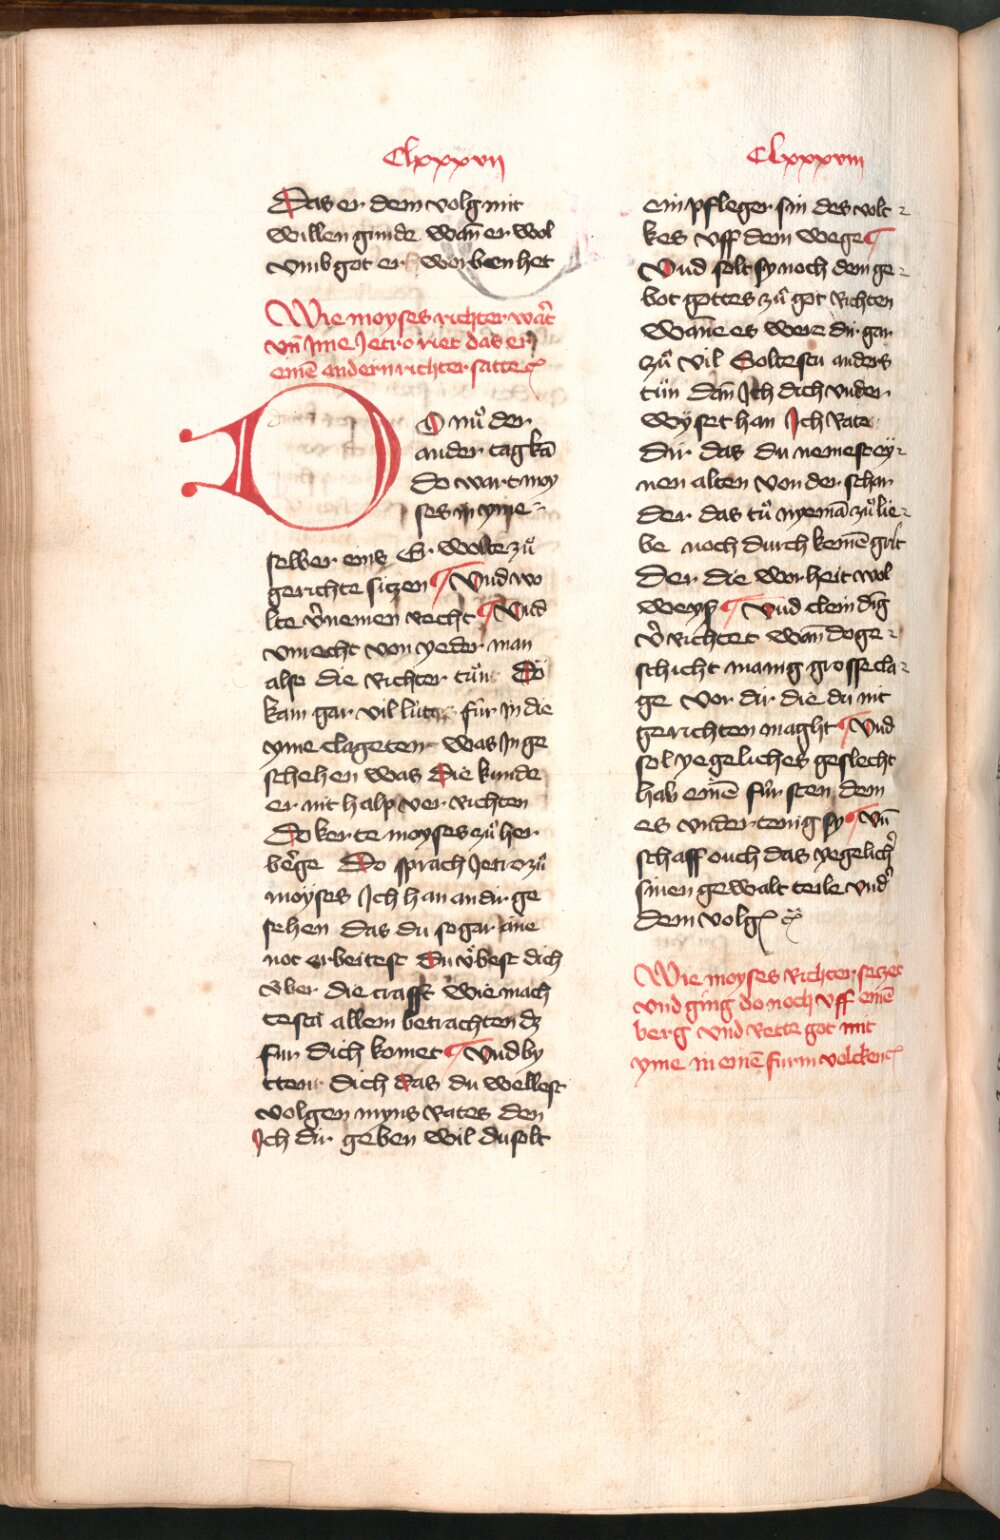 Clxxxvij
Das er dem volg mit
willen gunde wan̄ er wol
vmb got er worben het
Wie moyses richter wart
vn̄ Ime Jetro riet das er
eine̅ andern richter satte
DO nuͦ der
ander tag ka̅
do wart moy
ses in yme
selber eins Er wolte zuͦ
gerichte sitzen Vnd wo
lte v̾nemen recht Vnd
vnrecht von yeder man
also die richter tuͦnt Do
kam gar vil lüte für In die
yme clageten was In ge
schehen was Die kunde
er nit halp ver richten
Do kerte moyses zuͦ her
berge Do sprach Jetro zuͦ
moyses Ich han an dir ge
sehen das du so gar ane
not erbeitest Du vͤbest dich
vber die crafft wie mach
testu allein betrachten dz
fur dich komet Vnd by
tten dich das du wellest
volgen myns rates den
Ich dir geben wil du solt
CLxxxviij
ein pfleger sin des volc
kes vff dem wege
Vnd solt sy noch dem ge
bot gottes zuͦ got richten
Wan̄e es were dir gar
zuͦ vil Soltestu anders
tuͦn dan̄ Ich dich vnder
wyset han Ich rate
dir das du nemest ey
nen alten von der schar
der das tuͦ nyema̅ zuͦ lie
be noch durch keine̅ grit
Der die worheit wol
weyß Vnd clein di̅g
v̾richtet wan̄ do ge
schicht manig grosse cla
ge vor dir die du nit
gerichten maght Vnd
sol yegeliches geslecht
hab eine̅ fürsten dem
es vndertenig sy Vn̄
schaff ouch das yegelich̾
sinen gewalt teile vnd̾
dem volg
Wie moyses richter setzet
vnd ging do noch vff eine̅
berg vnd rette got mit
yme in eine̅ furin volcken